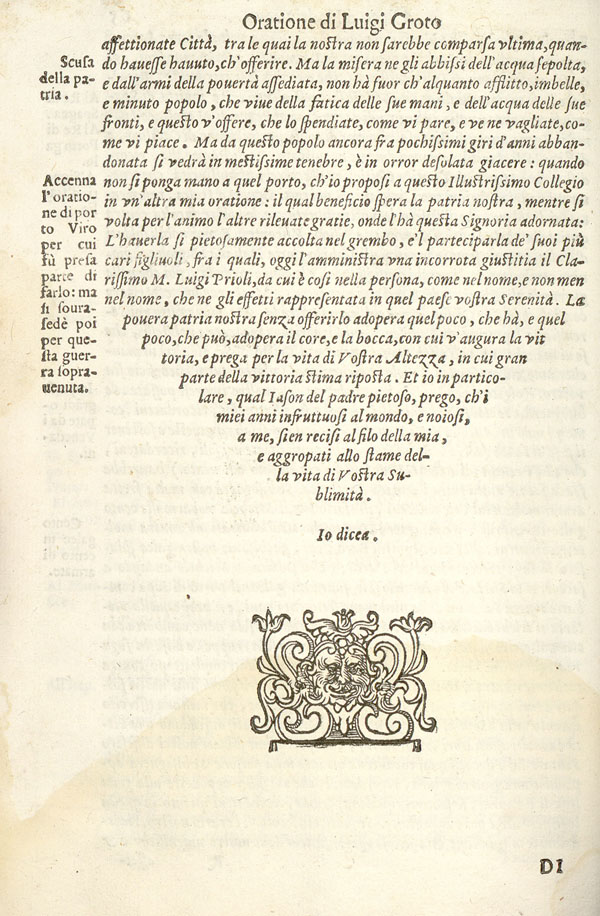 Oratione di Luigi Groto
affettionate Città, tra le quai la nostra non sarebbe comparsa vltima, quan-
do hauesse hauuto, ch'offerire. Ma la misera ne gli abbissi dell'acqua sepolta,
e dall'armi della pouertà assediata, non há fuor ch'alquanto afflitto, imbelle,
e minuto popolo, che viue della fatica delle sue mani, e dell'acqua delle sue
fronti, e questo v'offere, che lo spendiate, come vi pare, e ve ne vagliate, co-
me vi piace. Ma da questo popolo ancora fra pochissimi giri d'anni abban-
donata si vedrà in mestissime tenebre, è in orror desolata giacere: quando
non si ponga mano a quel porto, ch'io proposi a questo Illustrissimo Collegio
in vn'altra mia oratione: il qual beneficio spera la patria nostra, mentre si
volta per l'animo l'altre rileuate gratie, onde l'hà questa Signoria adornata:
L'hauerla sì pietosamente accolta nel grembo, e'l participarla de' suoi più
cari figliuoli, fra i quali, oggi l'amministra vna incorrota giustitia il Cla-
rissimo M. Luigi Prioli, da cui è così nella persona, come nel nome, e non men
nel nome, che ne gli effetti rappresentata in quel paese vostra Serenità. La
pouera patria nostra senza offerirlo adopera quel poco, che hà, e quel
poco, che può, adopera il core, e la bocca, con cui v'augura la vit
toria, e prega per la vita di Vostra Altezza, in cui gran
parte della vittoria stima riposta. Et io in partico-
lare, qual Iason del padre pietoso, prego, ch'i
miei anni infruttuosi al mondo, e noiosi,
a me, sien recisi al filo della mia,
e aggropati allo stame del-
la vita di Vostra Su-
blimità.
Io dicea.
Scusa
della pa-
tria.
Accenna
l'oratio-
ne di por
to Viro
per cui
fù presa
parte di
farlo: ma
si soura-
sedè poi
per que-
sta guer-
ra sopra-
uenuta.
DI